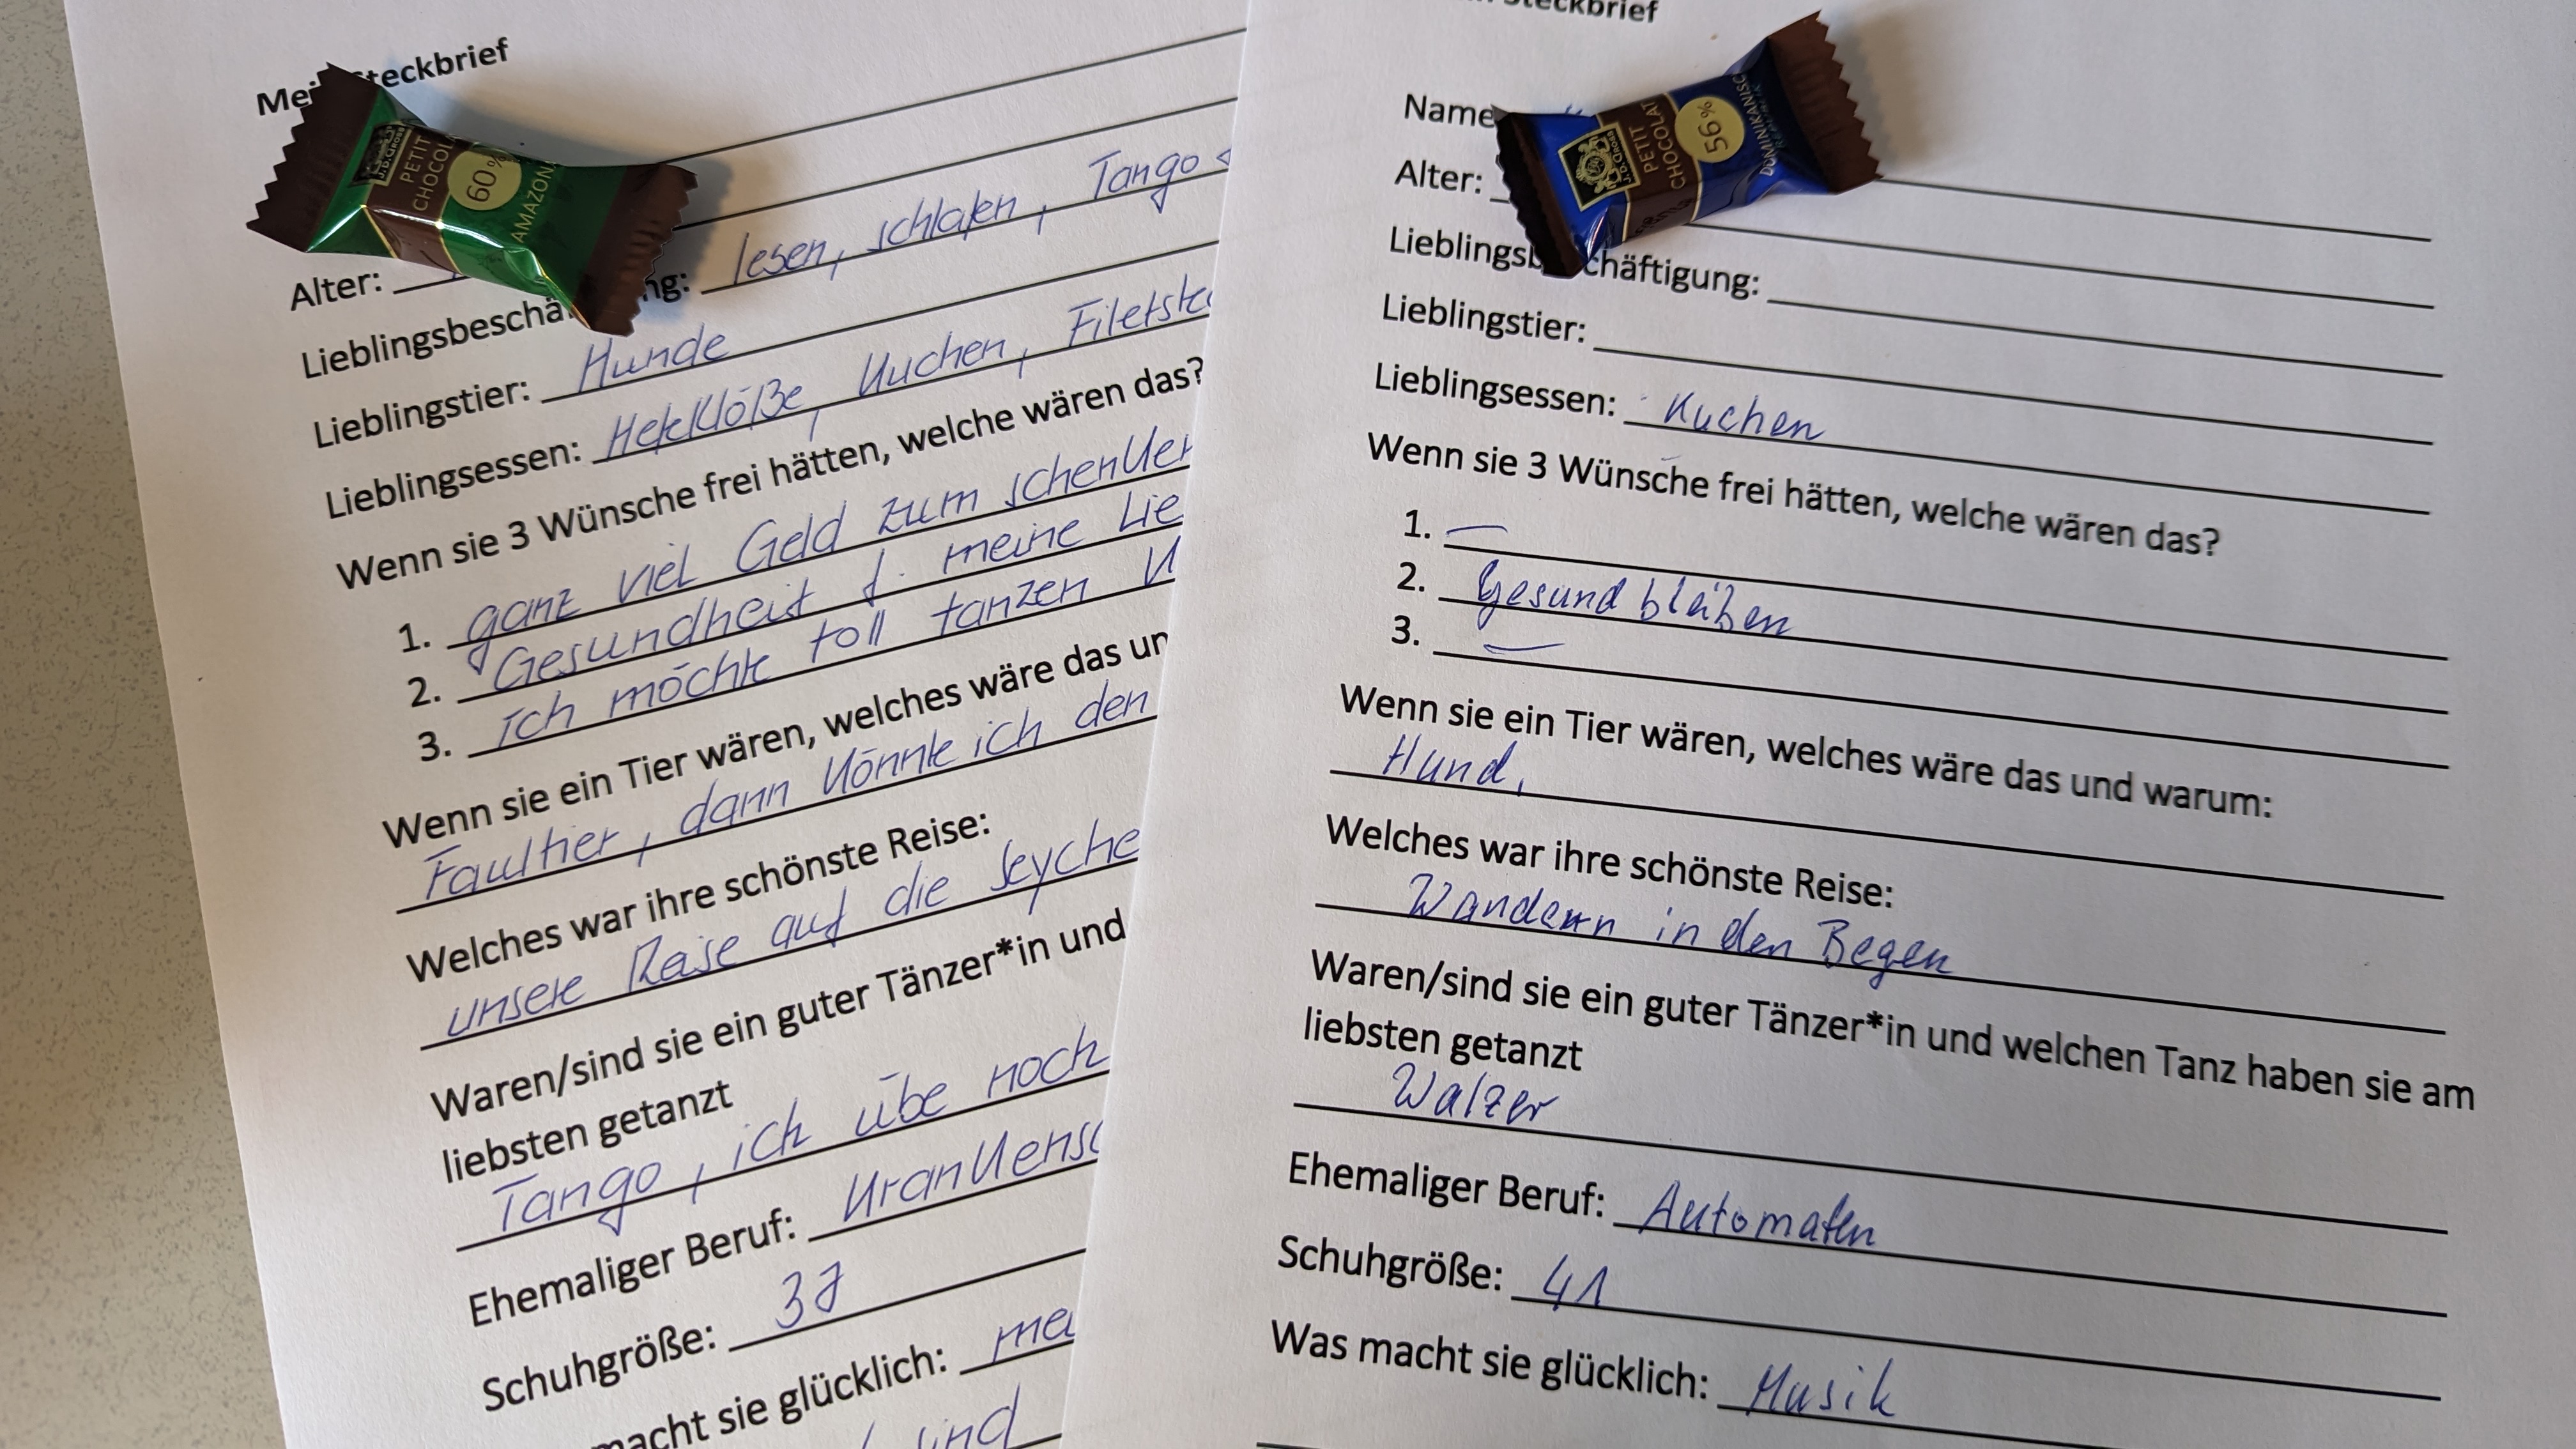 Mein Steckbrief
J.D. Gross
PETIT
CHOCOL
60%
AMAZONA
Alter:
Lieblingsbeschä ng: lesen, schlafen, Tango
Lieblingstier: Hunde
Lieblingsessen: Hefeklöße, Kuchen, Filetste
Wenn sie 3 Wünsche frei hätten, welche wären das?
1. ganz viel Geld zum schenken
2. Gesundheit f. meine Lie
3. ich möchte toll tanzen k
Wenn sie ein Tier wären, welches wäre das un
Faultier, dann könnte ich den
Welches war ihre schönste Reise:
unsere Reise auf die Seyche
Waren/sind sie ein guter Tänzer*in und
liebsten getanzt
Tango, ich übe noch
Ehemaliger Beruf: Krankensc
Schuhgröße: 37
macht sie glücklich: me
sind
Steckbrief
J.D. Gross
PETIT
CHOCOLAT
56%
DOMINIKANISC
Name
Alter:
Lieblingsb chäftigung:
Lieblingstier:
Lieblingsessen: Kuchen
Wenn sie 3 Wünsche frei hätten, welche wären das?
1. —
2. Gesund bleiben
3. —
Wenn sie ein Tier wären, welches wäre das und warum:
Hund,
Welches war ihre schönste Reise:
Wandern in den Begen
Waren/sind sie ein guter Tänzer*in und welchen Tanz haben sie am
liebsten getanzt
Walzer
Ehemaliger Beruf: Automaten
Schuhgröße: 41
Was macht sie glücklich: Musik